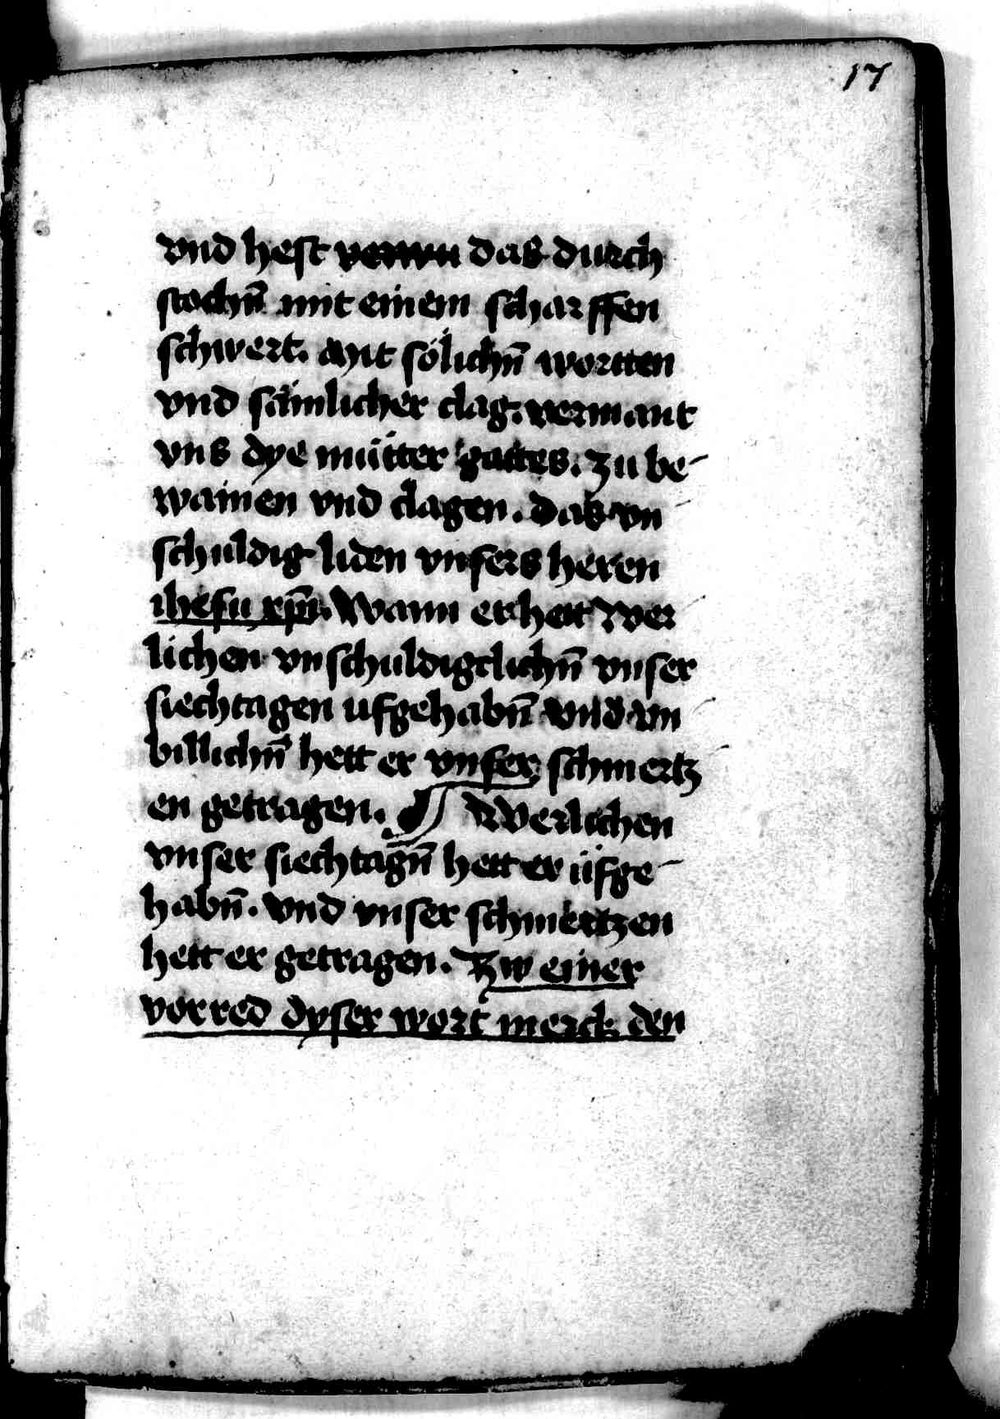 17
vnd hest verwu das durch
stochn̄ mit einem scharffen
schwert. Mit sölichn̄ wortten
vnd sämlicher clag. vermant
vns dye mütter gottes. zu be-
wainen vnd clagen. das vn
schuldig liden vnsers heren
ihesu xp̄i. Wann er hett wer
lichen vnschuldigclichn̄ vnser
siechtagen ufgehabn̄ vnd vn
billichn̄ hett er vnser schmertz
en getragen. ¶ Werlichen
vnser siechtagn̄ hett er ufge-
habn̄. vnd vnser schmertzen
hett er getragen. Zw einer
vorred dyser wort merck den